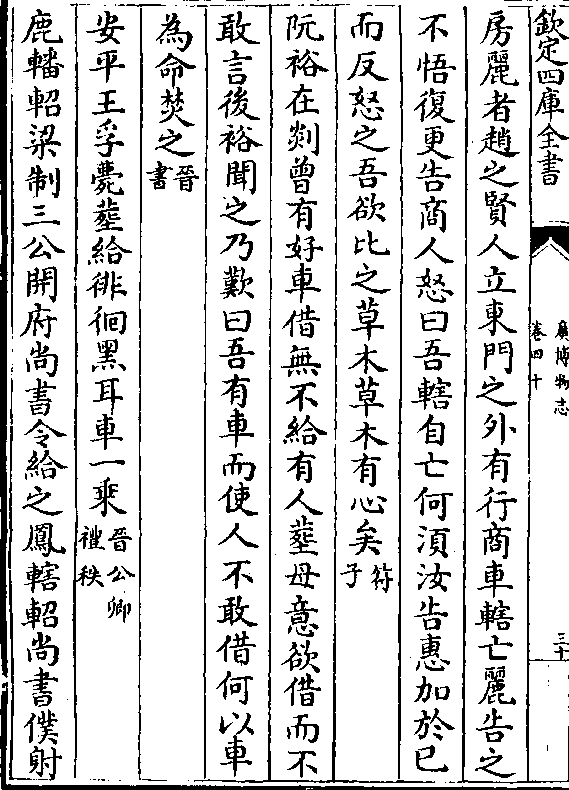 欽定四庫全書
廣博物志
卷四十
三十
房麗者趙之賢人立東門之外有行商車轄亡麗告之
不悟復更告商人怒曰吾轄自亡何湏汝告惠加於已
而反怒之吾欲比之草木草木有心矣符子
阮裕在剡曾有好車借無不給有人塟母意欲借而不
敢言後裕聞之乃歎曰吾有車而使人不敢借何以車
為命焚之晉書
安平王孚薨塟給徘徊黑耳車一乘晉公卿禮秩
鹿轓軺梁制三公開府尚書令給之鳳轄軺尚書僕射